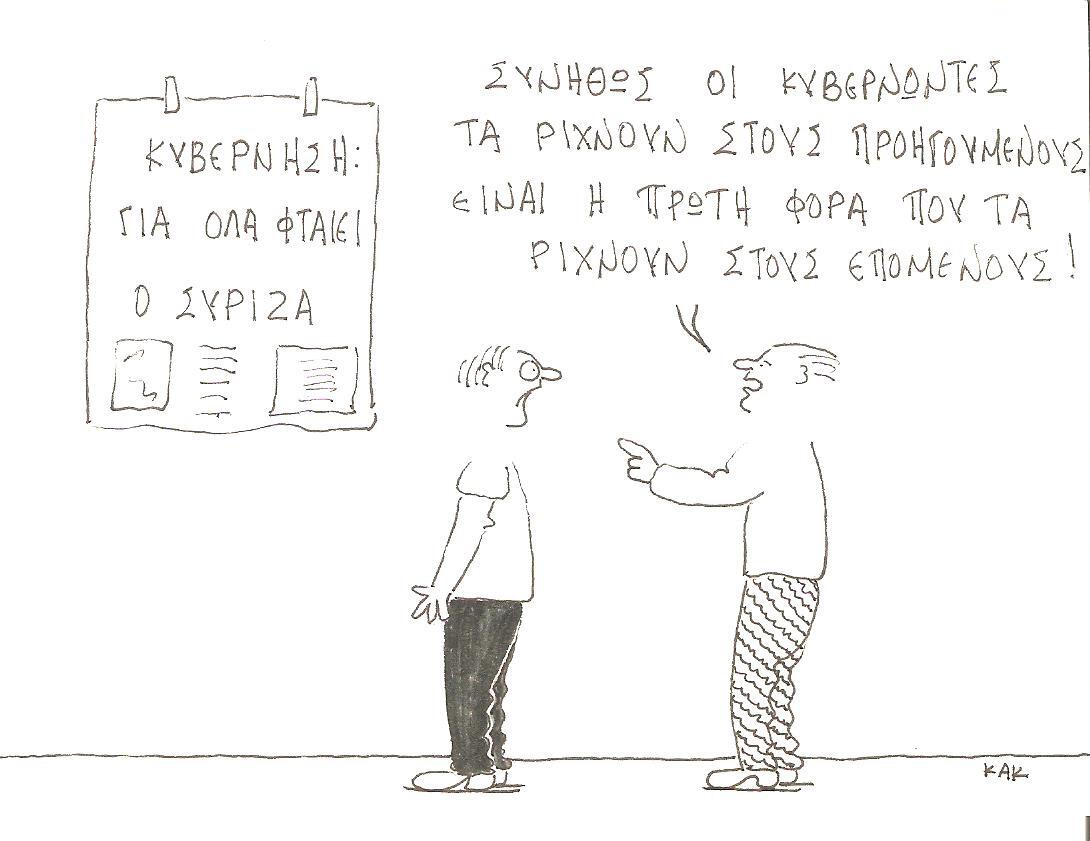 ΚΥΒΕΡΝΗΣΗ:
ΓΙΑ ΟΛΑ ΦΤΑΙΕΙ
Ο ΣΥΡΙΖΑ
ΣΥΝΗΘΩΣ ΟΙ ΚΥΒΕΡΝΩΝΤΕΣ
ΤΑ ΡΙΧΝΟΥΝ ΣΤΟΥΣ ΠΡΟΗΓΟΥΜΕΝΟΥΣ
ΕΙΝΑΙ Η ΠΡΩΤΗ ΦΟΡΑ ΠΟΥ ΤΑ
ΡΙΧΝΟΥΝ ΣΤΟΥΣ ΕΠΟΜΕΝΟΥΣ!
ΚΑΚ